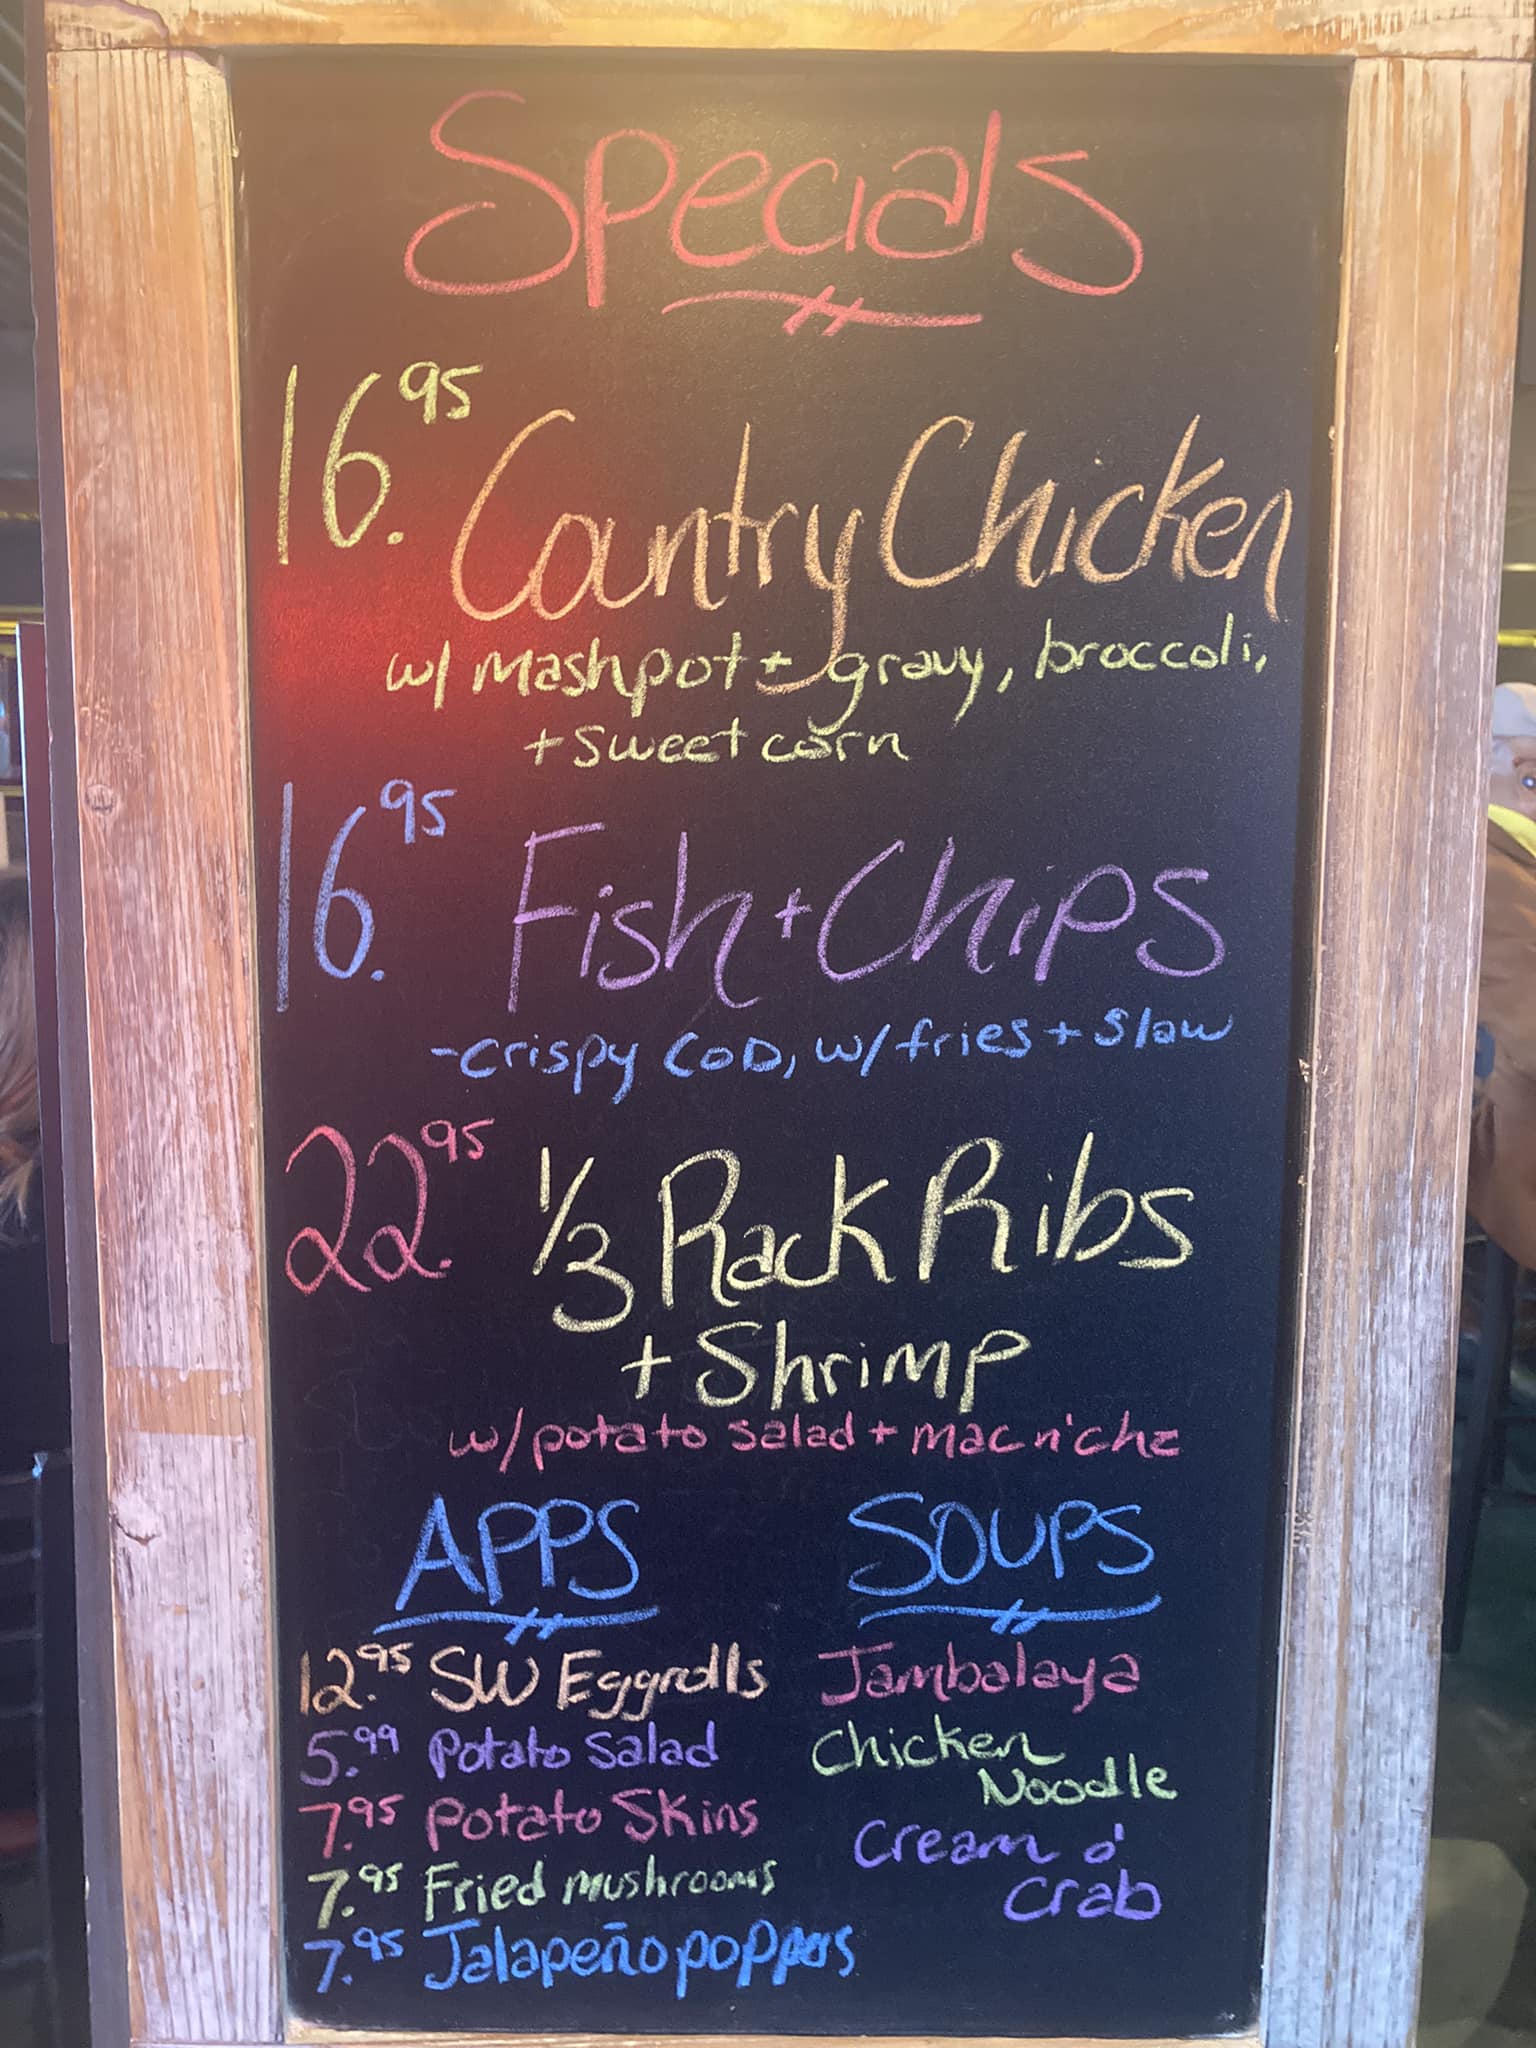 Specials
16.95 Country Chicken
w/ mashpot + gravy, broccoli,
+ sweet corn
16.95 Fish + Chips
- crispy COD, w/ fries + slaw
22.95 1/3 Rack Ribs
+ Shrimp
w/ potato salad + mac n' chz
APPS SOUPS
12.95 SW Eggrolls Jambalaya
5.99 Potato Salad Chicken
Noodle
7.95 Potato Skins
7.95 Fried mushrooms Cream o'
Crab
7.95 Jalapeño poppers